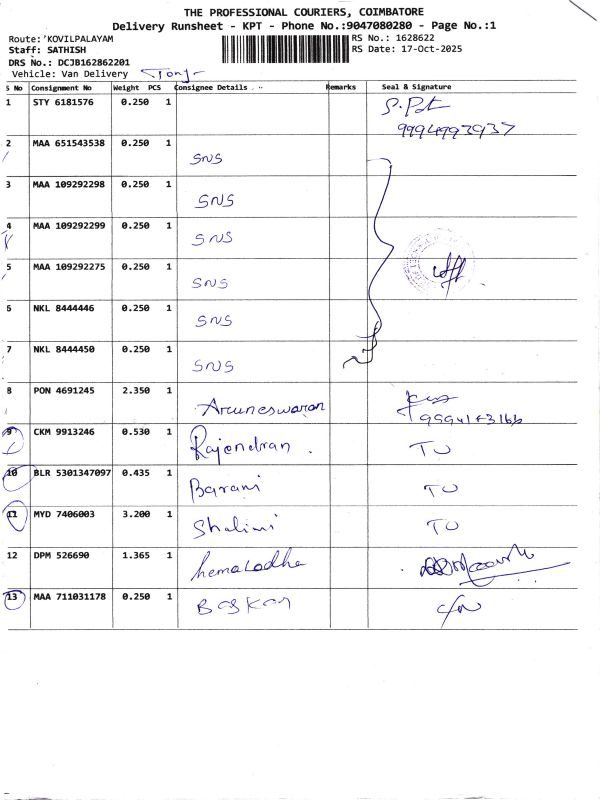 THE PROFESSIONAL COURIERS, COIMBATORE
Delivery Runsheet - KPT - Phone No.:9047080280 - Page No.:1
Route:'KOVILPALAYAM RS No.: 1628622
Staff: SATHISH RS Date: 17-Oct-2025
DRS No.: DCJB162862201
Vehicle: Van Delivery
S No Consignment No Weight PCS Consignee Details Remarks Seal & Signature
1 STY 6181576 0.250 1
9994993937
2 MAA 651543538 0.250 1 SNS
3 MAA 109292298 0.250 1 SNS
4 MAA 109292299 0.250 1 SNS
5 MAA 109292275 0.250 1 SNS
6 NKL 8444446 0.250 1 SNS
7 NKL 8444450 0.250 1 SNS
8 PON 4691245 2.350 1 Aruneswaran
9 CKM 9913246 0.530 1 Rajendran TU
10 BLR 5301347097 0.435 1 Barani TU
11 MYD 7406003 3.200 1 Shalini TU
12 DPM 526690 1.365 1 hemaladha
13 MAA 711031178 0.250 1 Baskar